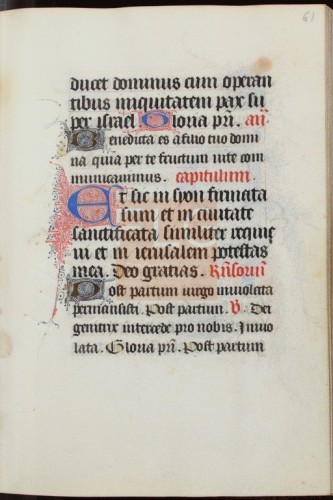 61
ducet dominus cum operan
tibus iniquitatem pax su
per israel Gloria pri. an.
Benedicta es a filio tuo domi
na quia per te fructum vite com
municauimus. capitulum.
Et sic in syon firmata
sum et in ciuitate
sanctificata similiter requie
ui et in ierusalem potestas
mea. Deo gratias. Rnsoriu
Post partum uirgo inuiolata
permansisti. Post partum. V. Dei
genitrix intercede pro nobis. Inuio
lata. Gloria pri. Post partum